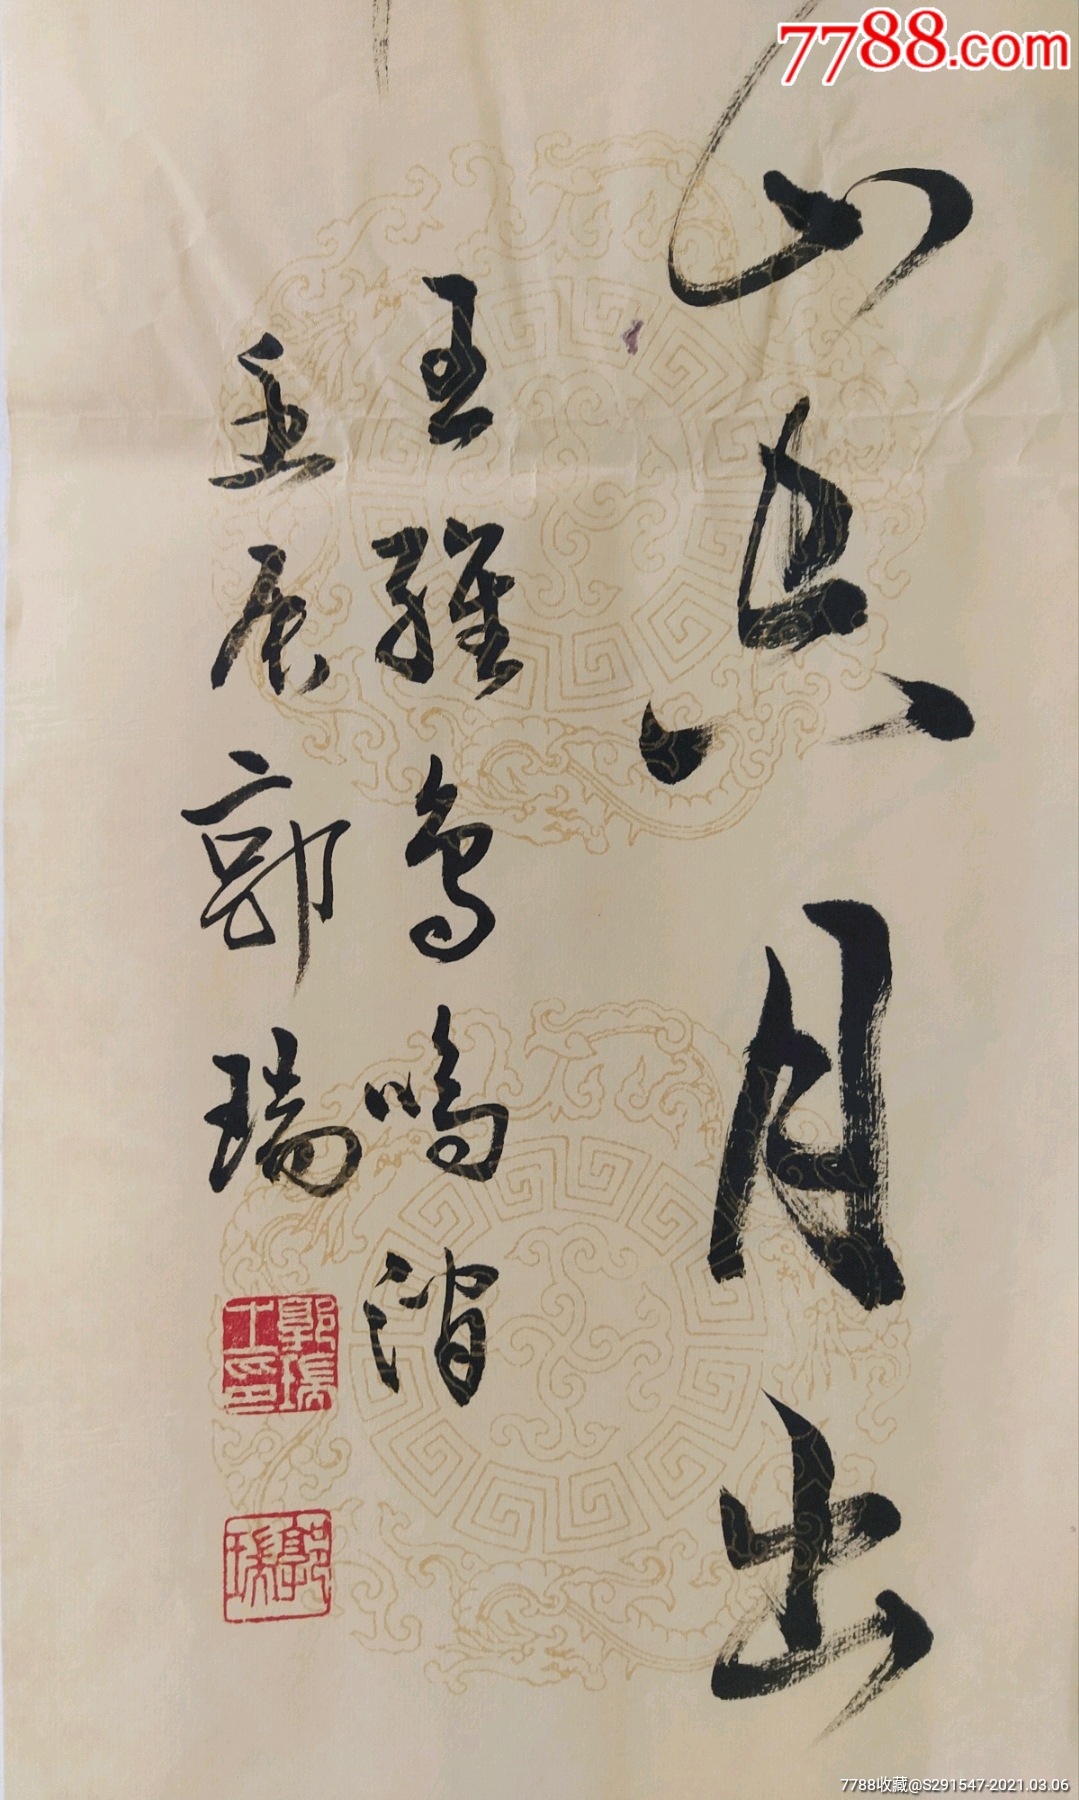 7788.com
山空月出
王維鸟鸣涧
壬辰郭瑞
7788收藏@S291547-2021.03.06